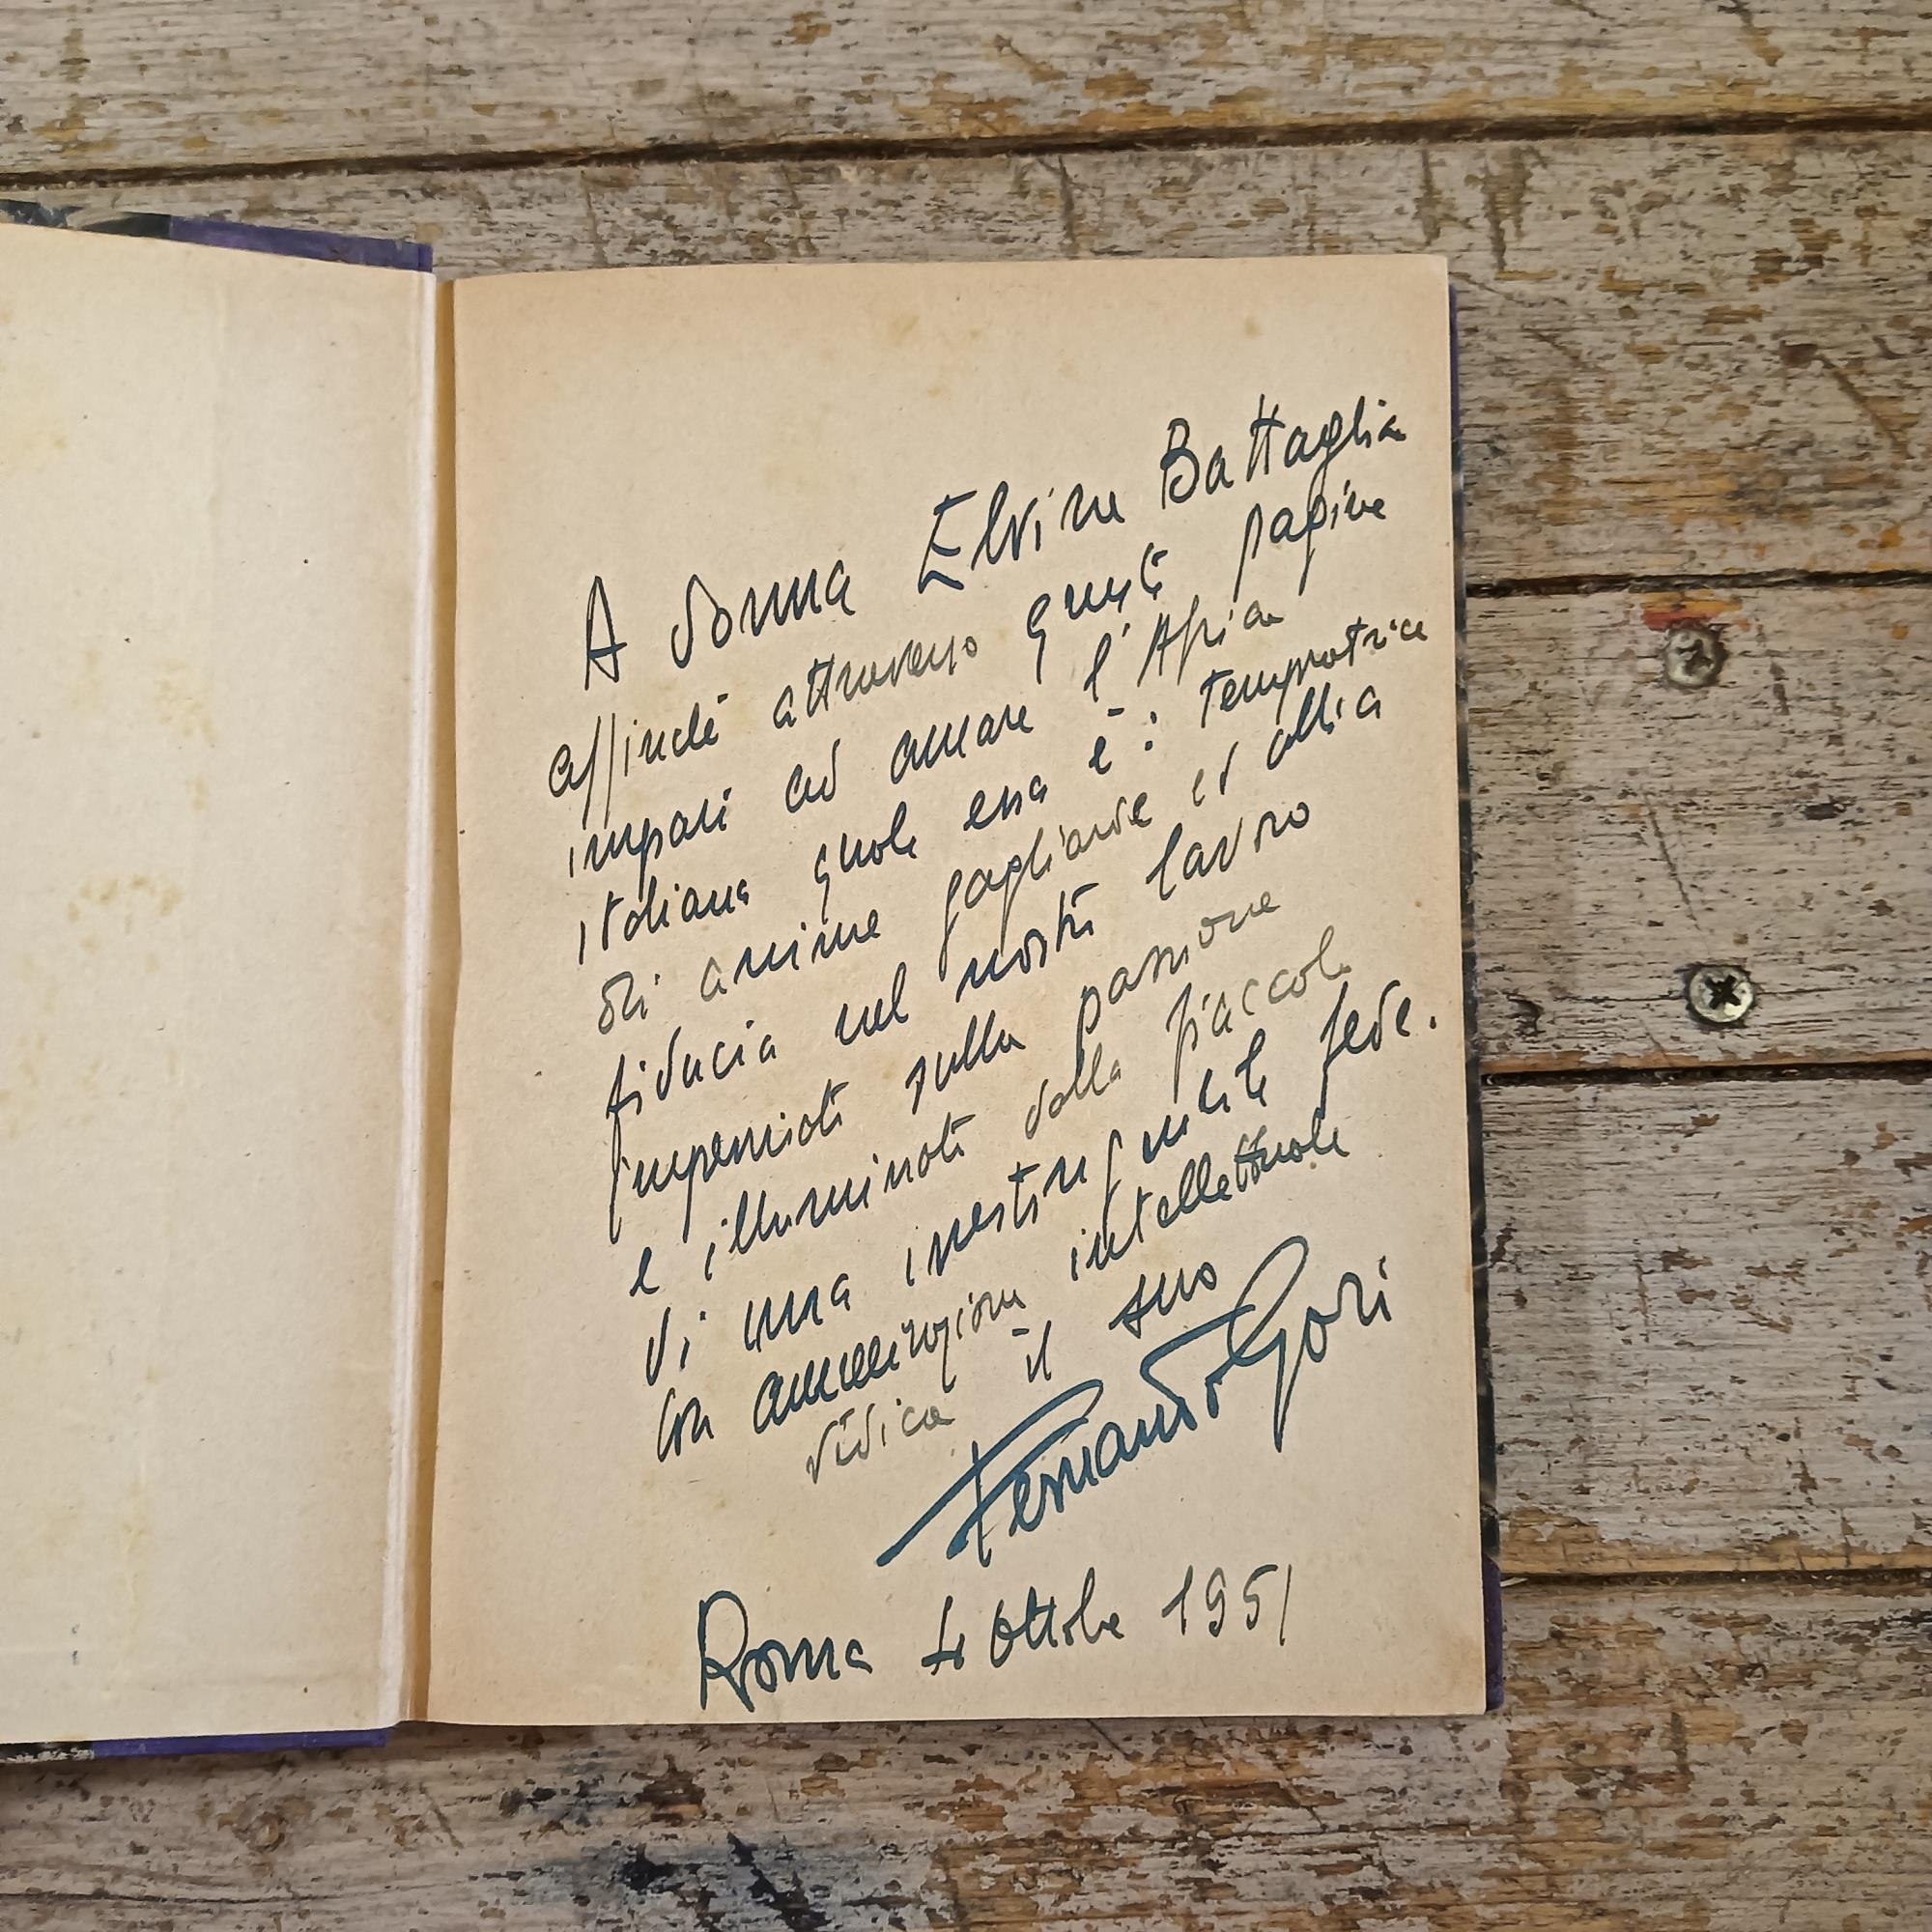 A donna Elvira Battaglia
affinchè attraverso queste pagine
impari ad amare l'Africa
italiana quale essa è: tempratrice
di anime gagliarde ed abbia
fiducia nel nostro lavoro
imperniato sulla passione
e illuminato dalla fiaccola
di una inestinguibile fede.
Con ammirazione intellettuale
dedica il suo
Fernando Gori
Roma 4 Ottobre 1951